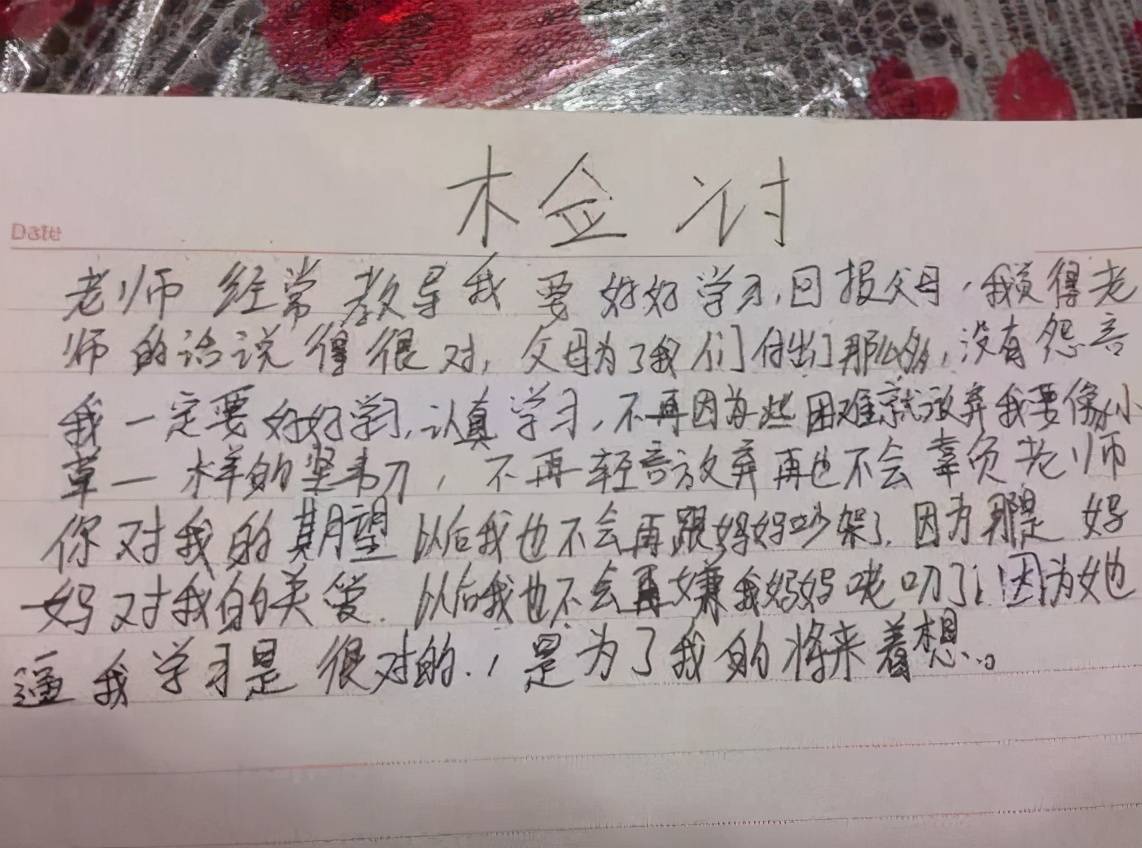 检讨
Date
老师经常教导我要好好学习,回报父母,我觉得老
师的话说得很对,父母为了我们付出了那么多,没有怨言
我一定要好好学习,认真学习,不再因为些困难就放弃我要像小
草一样的坚韧,不再轻言放弃再也不会辜负老师
你对我的期望以后我也不会再跟妈妈吵架了,因为那是妈
妈对我的关爱.以后我也不会再嫌我妈妈唠叨了,因为她
逼我学习是很对的.,是为了我的将来着想。